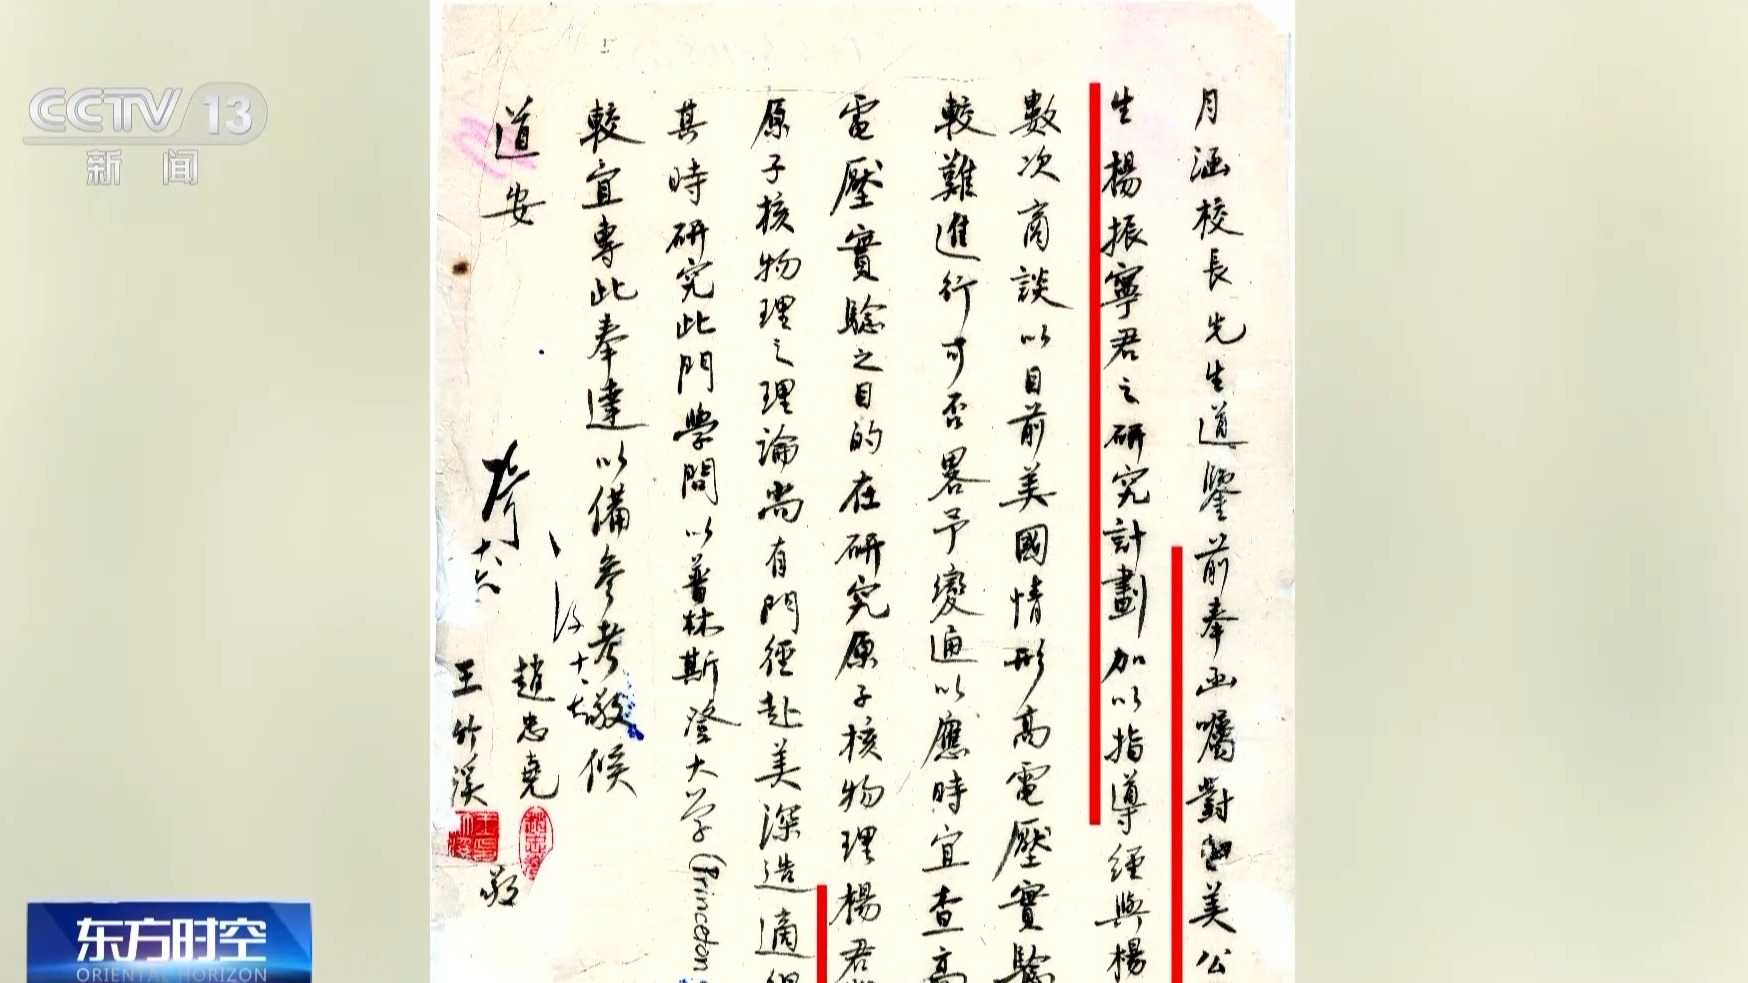 CCTV 13
新闻
月涵校長先生道鑒前奉函囑對留美公
生楊振寧君之研究計劃加以指導經與楊
數次商談以目前美國情形高電壓實驗
較難進行可否畧予變通以應時宜查高
電壓實驗之目的在研究原子核物理楊君
原子核物理之理論尚有門徑赴美深造適
其時研究此門學問以普林斯登大学(Princeton
較宜專此奉達以備參考敬候
道安
趙忠堯
王竹溪
敬
东方时空
ORIENTAL HORIZON